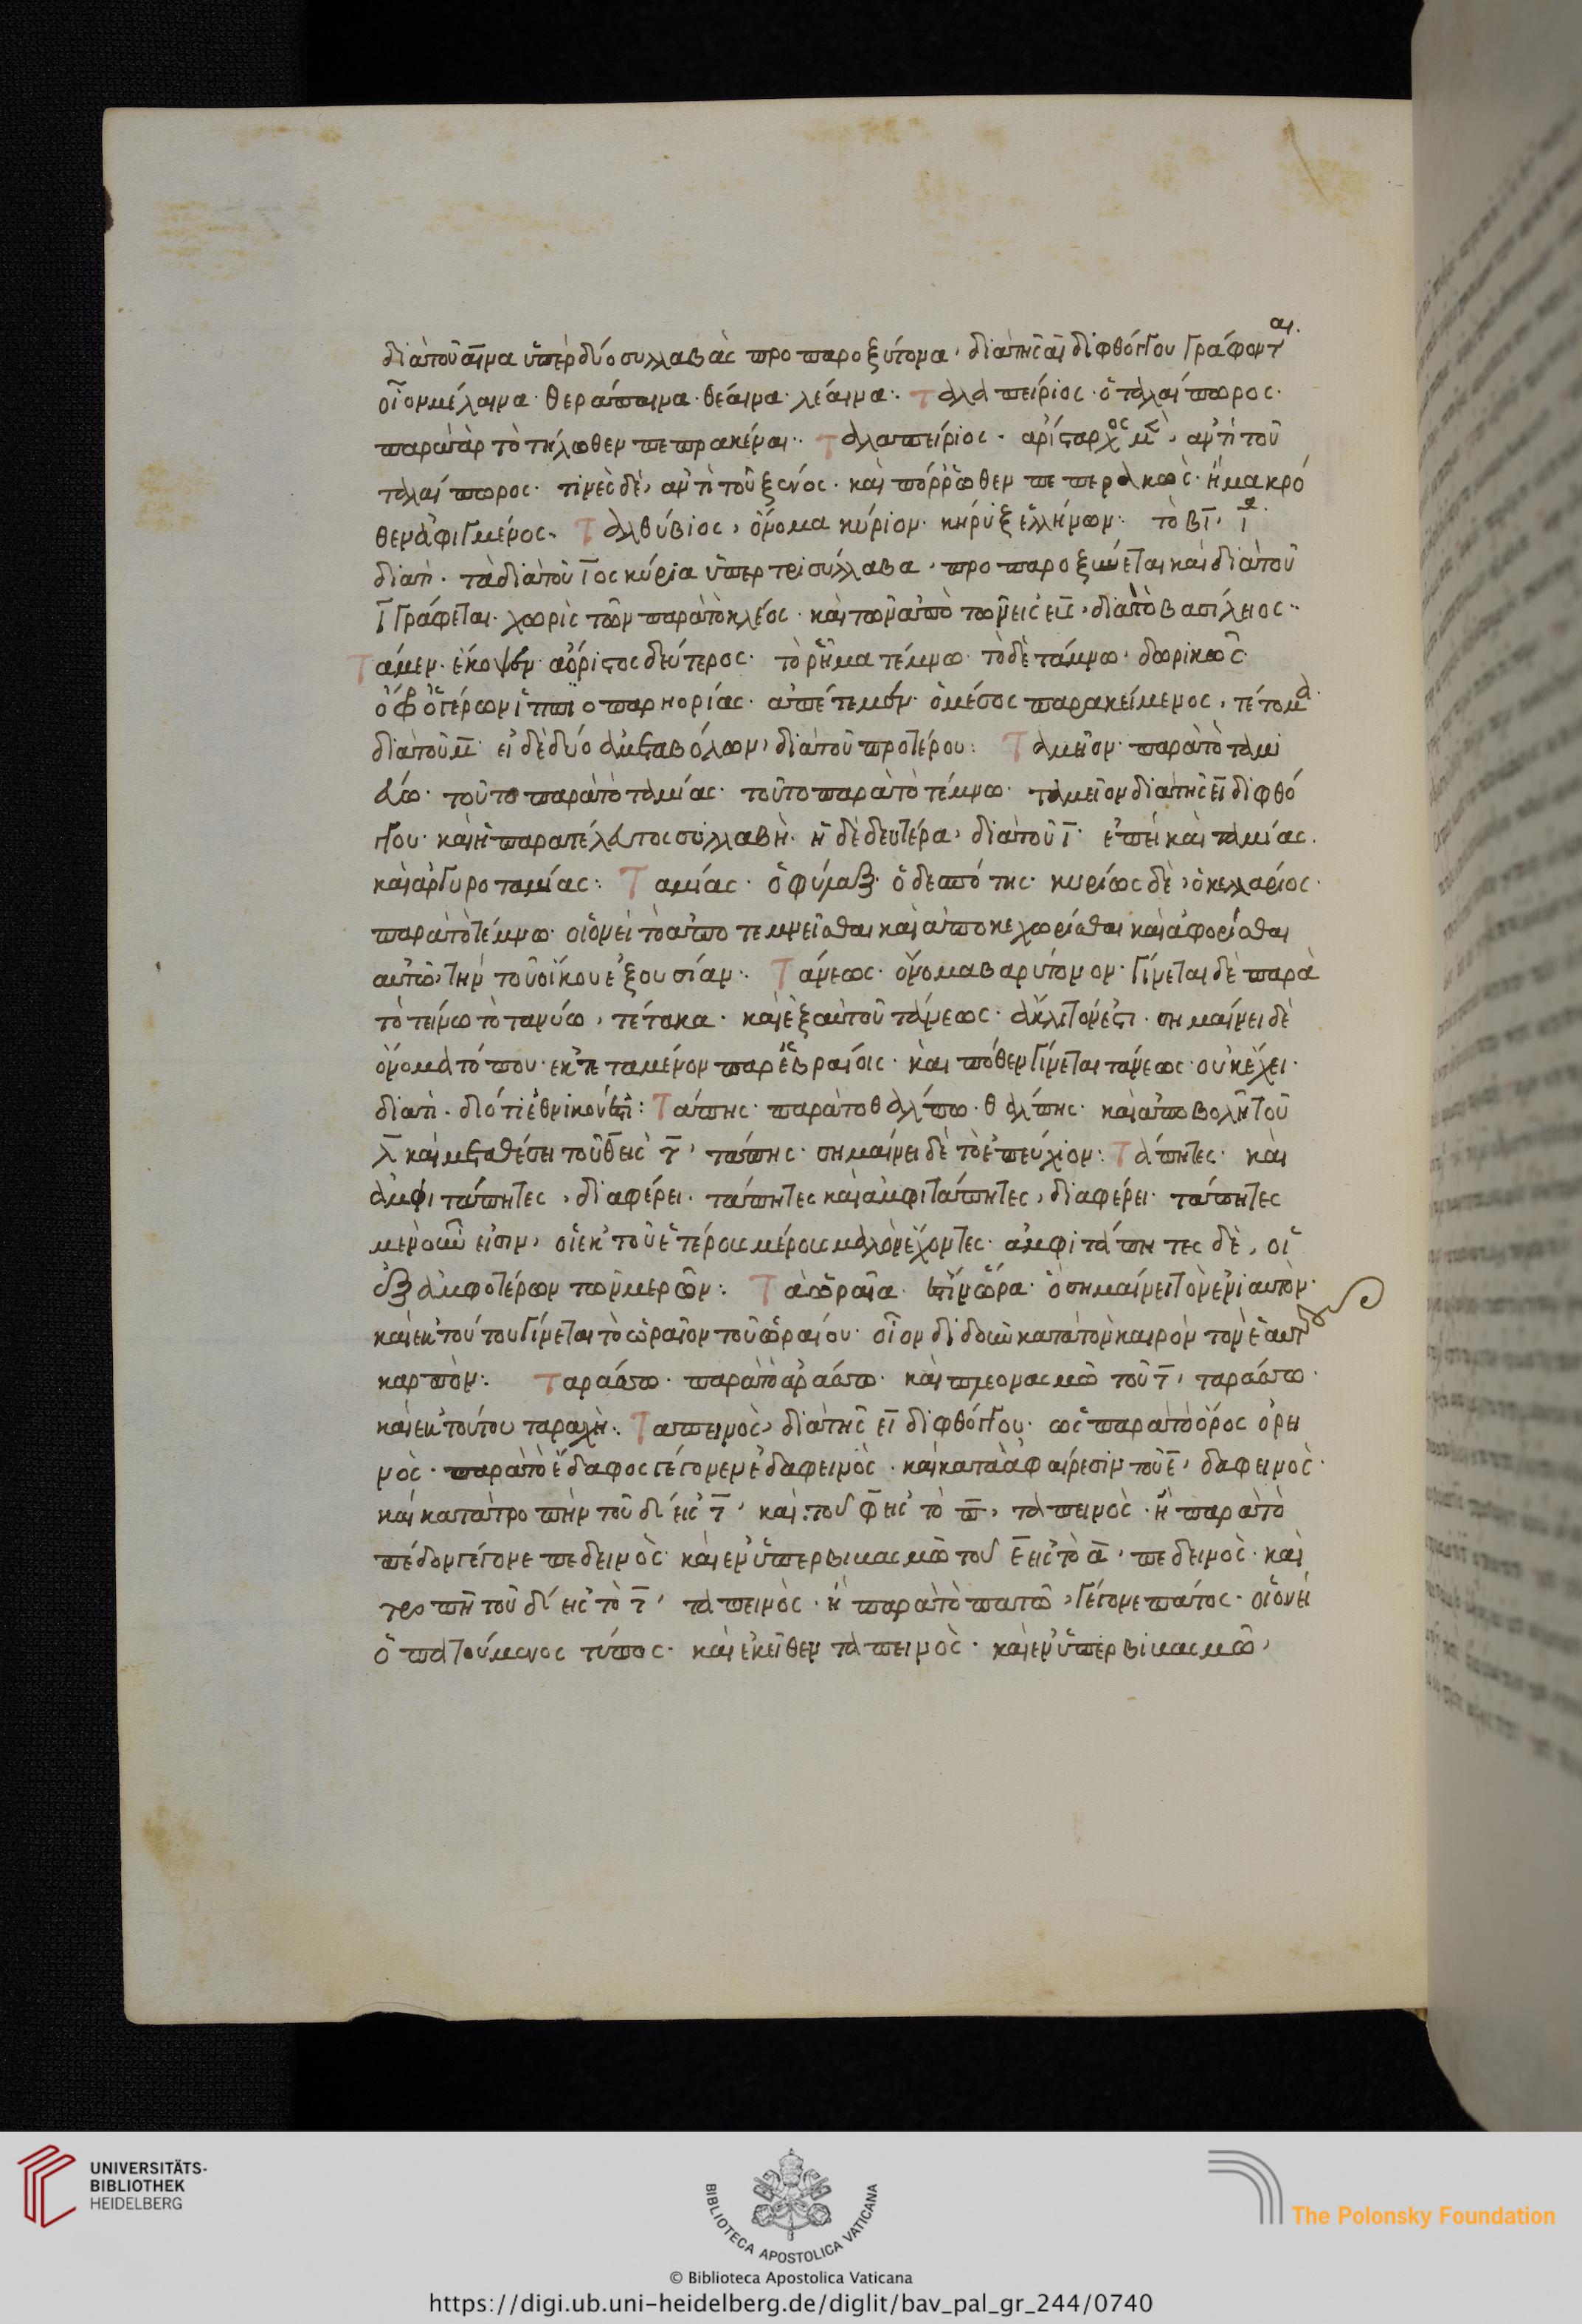 διὰ τοῦ αινα ὑπὲρ δύο συλλαβὰς προπαροξύτονα, διὰ τῆς αι διφθόγγου γράφονται.
οἷον μέλαινα· θεράπαινα· θέαινα· λέαινα· Ταλαπείριος· ὁ ταλαίπωρος·
παρὰ τὸ τηλωθεν πεπρακέναι· Ταλαπείριος· ἀρίσταρχος μὲν, ἀντὶ τοῦ
ταλαίπωρος· τινὲς δὲ, ἀντὶ τοῦ ξένος· καὶ πόρρωθεν πεπερακὼς· ἢ μακρό
θεν ἀφιγμένος· Ταλθύβιος, ὄνομα κύριον· κήρυξ ἑλλήνων· τὸ βι, ι·
διατί· τὰ διὰ τοῦ ιος κύρια ὑπὲρ τρισύλλαβα, προπαροξύνεται καὶ διὰ τοῦ
ι γράφεται· χωρὶς τῶν παρὰ τὸ κλέος· καὶ τῶν ἀπὸ τῶν εἰς ευς, διὰ τὸ βασίλειος·
Τάμεν· ἔκοψεν· ἀόριστος δεύτερος· τὸ ῥῆμα τέμνω· τὸ δὲ τάμνω, δωρικῶς·
παρηορίας· ἀπέτεμεν· ὁ μέσος παρακείμενος, τέτομα·
διὰ τοῦ μ· εἰ δὲ δύο ἀμεταβόλων, διὰ τοῦ προτέρου: Ταμεῖον· παρὰ τὸ ταμι
άω· τοῦτο παρὰ τὸ ταμίας· τοῦτο παρὰ τὸ τέμνω· ταμεῖον διὰ τῆς ει διφθό
γγου· καὶ ἡ παρατέλευτος συλλαβὴ· ἡ δὲ δευτέρα, διὰ τοῦ ι· ἐπεὶ καὶ ταμίας·
καὶ ἀργυροταμίας: Ταμίας· ὁ φύλαξ· ὁ δεσπότης· κυρίως δὲ, ὁ κελλαρίος·
παρὰ τὸ τέμνω· οἱονεὶ τὸ ἀποτεμνεῖσθαι καὶ ἀποκεχωρίσθαι καὶ ἀφορίσθαι
αὐτῶ, τὴν τοῦ οἴκου ἐξουσίαν· Τάνεως· ὄνομα βαρύτονον· γίνεται δὲ παρὰ
τὸ τείνω τὸ τανύω, τέτακα· καὶ ἐξ αὐτοῦ τάνεως· ἄκλιτόν ἐστι· σημαίνει δὲ
ὄνομα τόπου· ἐκτεταμένον παρ' ἑβραίοις· καὶ πόθεν γίνεται τάνεως· οὐκ ἔχει·
διατί· διότι ἐθνικόν ἐστι: Τάπης· παρὰ τὸ θάλπω· θάλπης· καὶ ἀποβολῆ τοῦ
λ καὶ μεταθέσει τοῦ θ εἰς τ, τάπης· σημαίνει δὲ τὸ ἐπεύχιον: Τάπητες· καὶ
ἀμφιτάπητες, διαφέρει· τάπητες καὶ ἀμφιτάπητες, διαφέρει· τάπητες
μὲν οὖν εἰσιν, οἱ ἐκ τοῦ ἑτέρου μέρους μαλὸν ἔχοντες· ἀμφιτάπητες δὲ, οἱ
ἐξ ἀμφοτέρων τῶν μερῶν: Τὰ ὡραῖα· ἐστὶν ὥρα· ὃ σημαίνει τὸν ἐνιαυτὸν·
καὶ ἐκ τούτου γίνεται τὸ ὡραῖον τοῦ ὡραίου· οἷον διδοὺς κατὰ τὸν καιρὸν τὸν ἑαυτοῦ
καρπὸν: Ταράσσω· παρὰ τὸ ἀράσσω· καὶ πλεονασμῶ τοῦ τ, ταράσσω·
καὶ ἐκ τούτου ταραχὴ· Ταπεινὸς, διὰ τῆς ει διφθόγγου· ὡς παρὰ τὸ ὄρος ὀρει
νὸς· παρὰ τὸ ἔδαφος γέγονεν ἐδαφεινὸς· καὶ κατὰ ἀφαίρεσιν τοῦ ε, δαφεινὸς·
καὶ κατὰ τροπὴν τοῦ δ εἰς τ, καὶ τοῦ φ εἰς τὸ π, ταπεινὸς· ἢ παρὰ τὸ
πέδον γέγονε πεδεινὸς· καὶ ἐν ὑπερβιβασμῶ τοῦ ε εἰς τὸ α, πεδεινὸς· καὶ
τροπῆ τοῦ δ εἰς τὸ τ, ταπεινὸς· ἢ παρὰ τὸ πατῶ, γέγονε πάτος· οἱονεὶ
ὁ πατούμενος τύπος· καὶ ἐκεῖθεν ταπεινὸς· καὶ ἐν ὑπερβιβασμῶ,
UNIVERSITÄTS-
BIBLIOTHEK
HEIDELBERG
BIBLIOTECA APOSTOLICA VATICANA
The Polonsky Foundation
© Biblioteca Apostolica Vaticana
https://digi.ub.uni-heidelberg.de/diglit/bav_pal_gr_244/0740